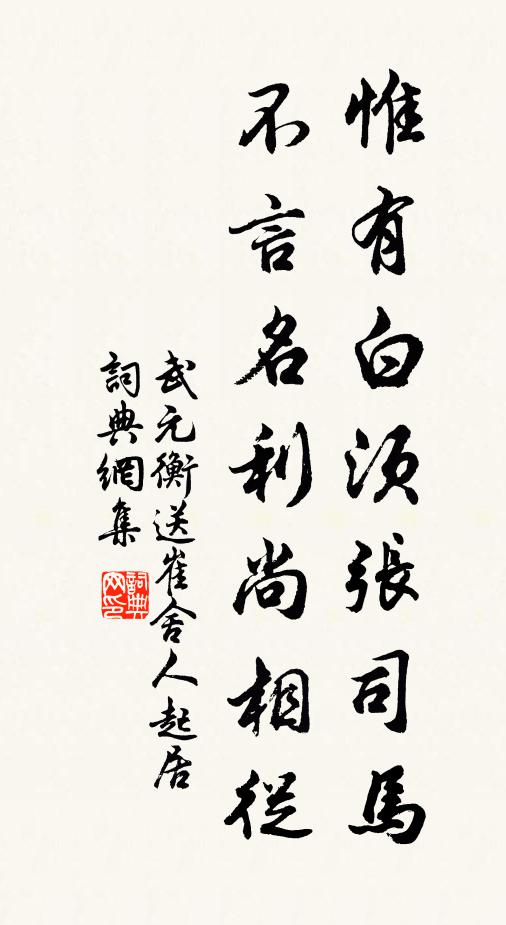 惟有白須張司馬
不言名利尚相從
武元衡送崔舍人起居
詞典網集
詞典网印